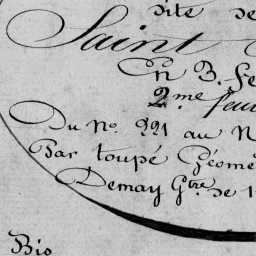 dite de
Saint
En B. Fe
2.me feui
Du No. 221 au N
Par toupé Géomè
Demay Gtre. de 1
Bio